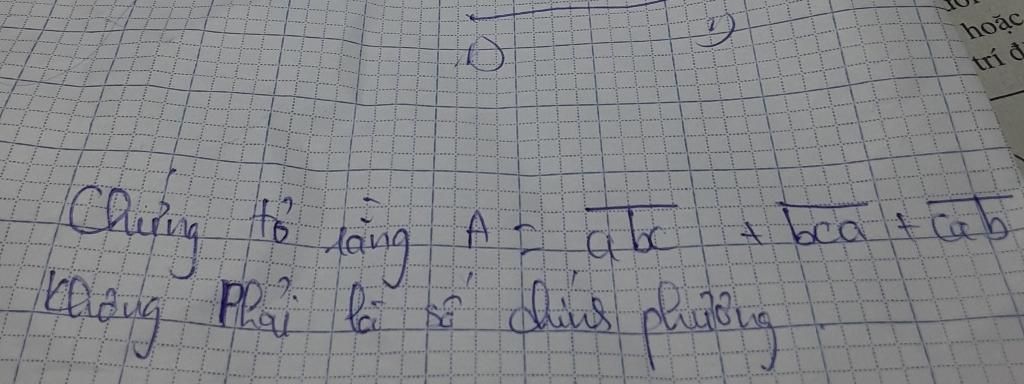 hoặc
trí đ
Chứng tỏ rằng A = \overline{abc} + \overline{bca} + \overline{cab}
không phải là số chính phương